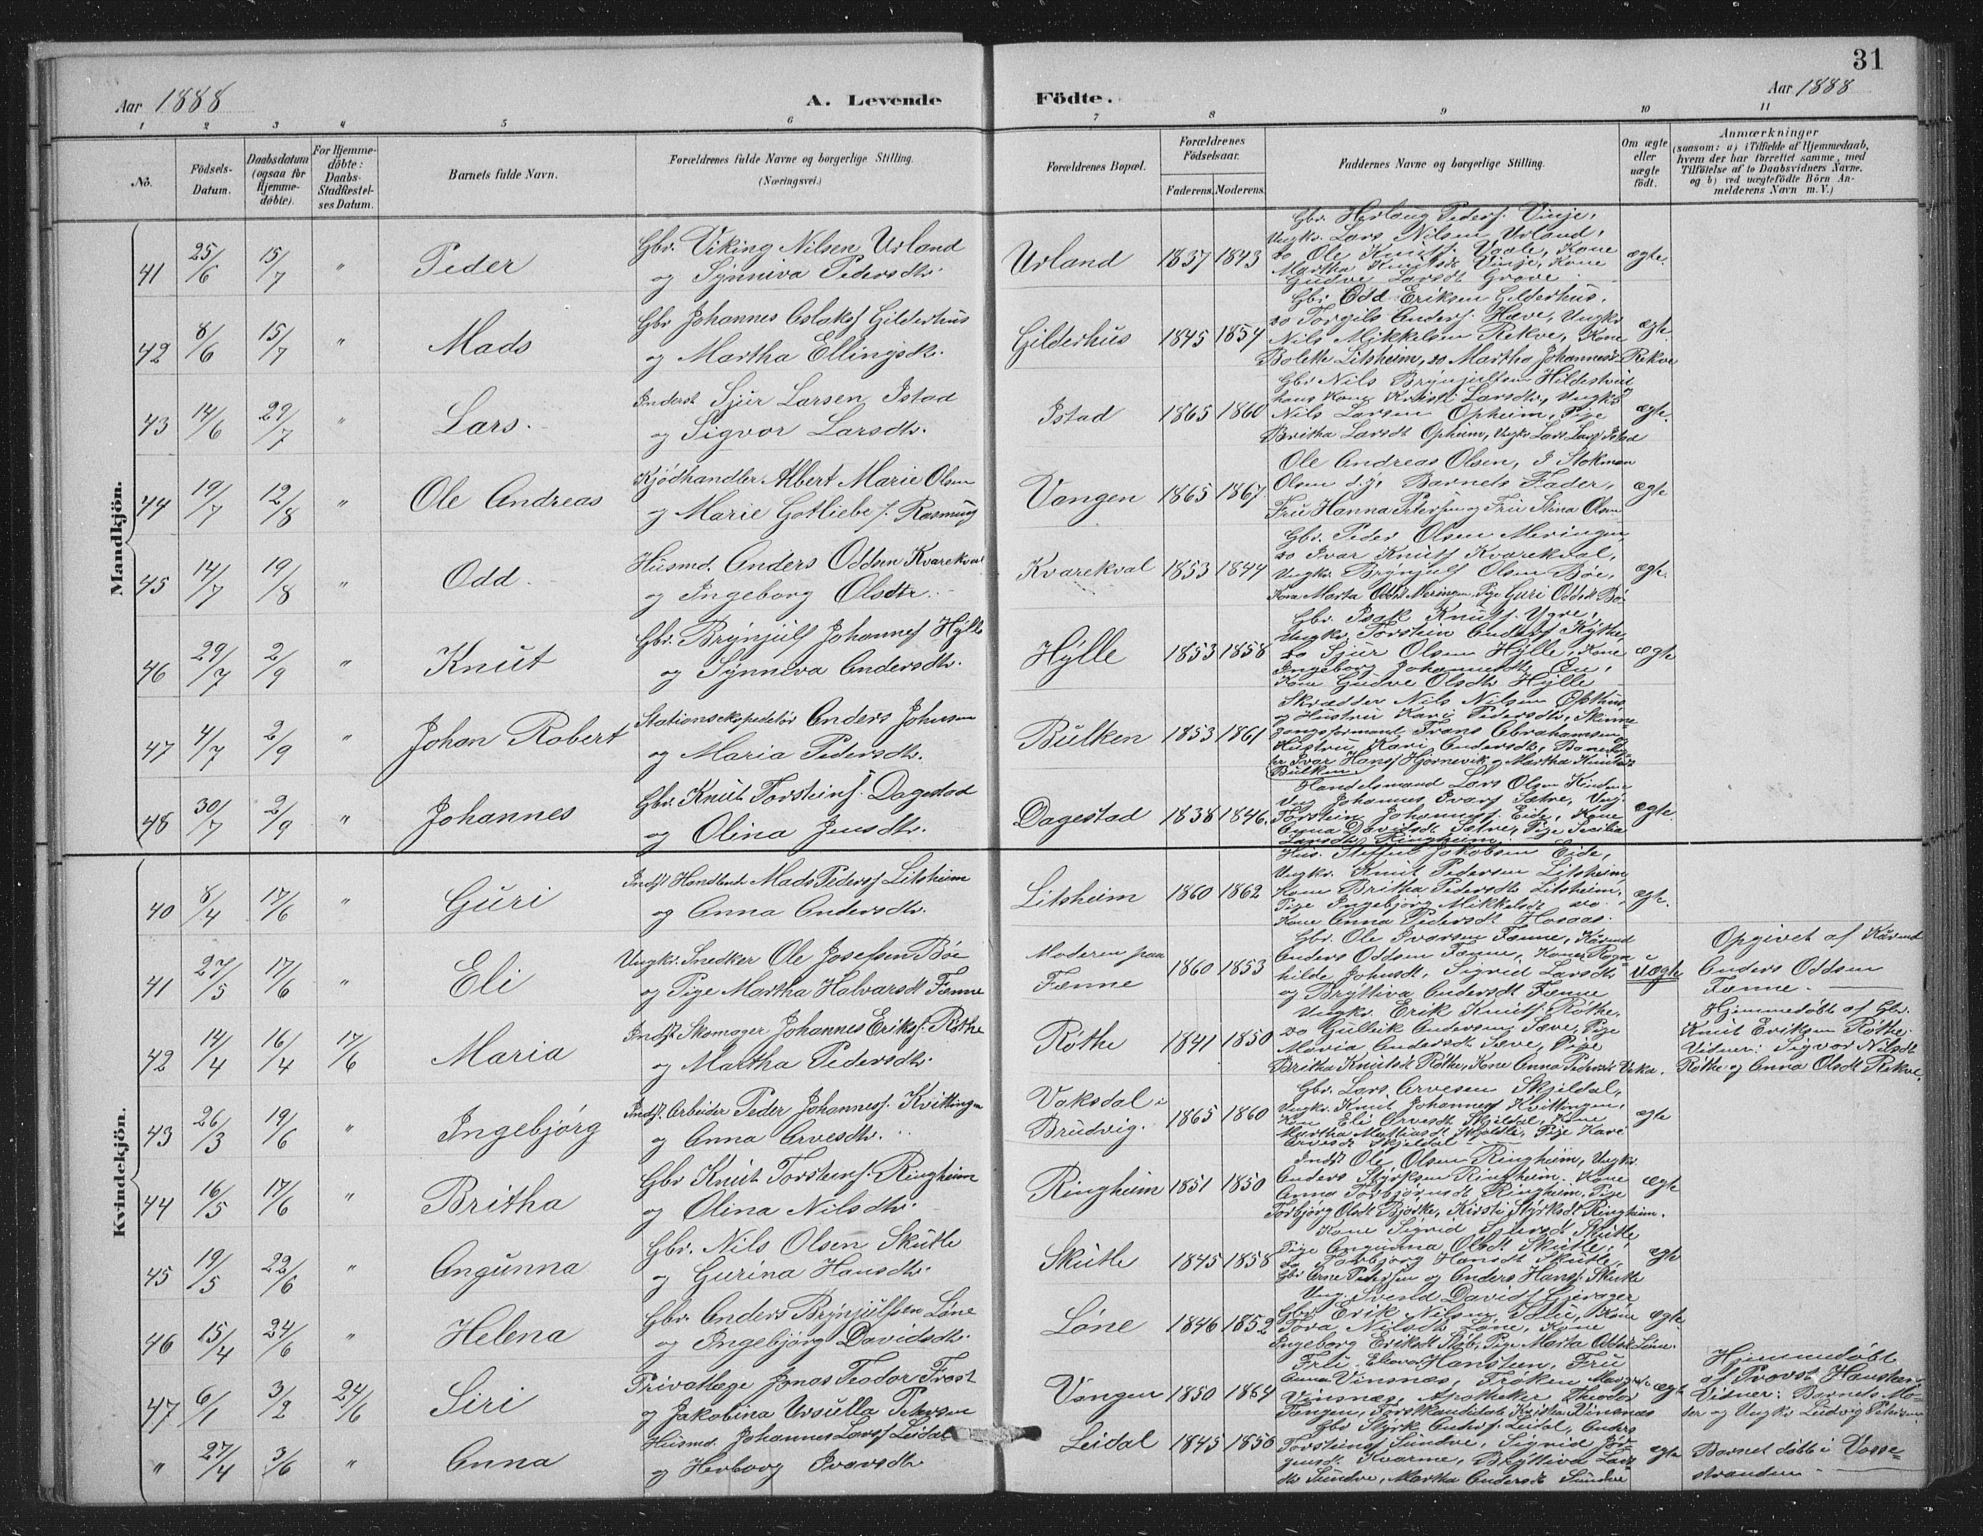 31
Aar 1888
A. Levende
Födte.
Aar 1888
1 2 3 4 5 6 7 8 9 10 11
No.
Födsels-Datum.
Daabsdatum (ogsaa for Hjemme-døbte).
For Hjemme-döbte: Daabs-Stadfæstel-ses Datum.
Barnets fulde Navn.
Forældrenes fulde Navne og borgerlige Stilling.
(Næringsvei.)
Forældrenes Bopæl.
Forældrenes Födselsaar.
Faderens. Moderens.
Faddernes Navne og borgerlige Stilling.
Om ægte eller uægte födt.
Anmærkninger
(saasom: a) i Tilfælde af Hjemmedaab, hvem der har forrettet samme, med Tilföielse af to Daabsvidners Navne, og b) ved uægtefödte Börn Anmelderens Navn m. V.)
Mandkjön.
41 25/6 15/7 " Peder
Gbr. Viking Nilsen Urland
og Synniva Pedersdtr.
Urland 1837 1843
Gbr. Herlaug Peders. Vinje,
Ungkr. Lars Nilsen Urland,
do Ole Knuts. Vaale, Kone
Martha Knutsdt Vinje, Kone
Gudve Larsdt Grove.
ægte.
42 8/6 15/7 " Mads
Gbr Johannes Aslaks. Gilderhus
og Martha Ellingsdtr.
Gilderhus 1845 1854
Gbr Odd Eriksen Gilderhus.
do Torgils Anders. Hæve, Ungkr
Nils Mikkelsen Rekve, Kone
Bolette Litsheim, do Martha Johannesdt Rekve
ægte.
43 14/6 29/7 " Lars.
Inderst Sjur Larsen Istad
og Sigvor Larsdtr.
Istad 1865 1860
Gbr Nils Brynjulfsen Hildestveit
hans Kone Kristi Larsdtr, Ungkr
Nils Larsen Opheim, Pige
Britha Larsdt Opheim, Ungkr Lars Lars. Istad
ægte.
44 19/7 12/8 " Ole Andreas
Kjødhandler Albert Marie Olsen
og Marie Gotliebe f. Rasmus
Vangen 1865 1867
Ole Andreas Olsen, J Stokman
Olsen d.y., Barnets Fader,
Fru Hanna Petersen og Fru Nina Olsen
ægte
45 14/7 19/8 " Odd.
Husmd. Anders Oddsen Kvarekval
og Ingeborg Olsdtr.
Kvarekval 1853 1844
Gbr. Peder Olsen Meringen
do Ivar Knuts. Kvarekval,
Ungkr. Brynjulf Olsen Bøe,
Kone Marta Oddsdt Meringen, Pige Guri Oddsdt Bø
ægte.
46 29/7 2/9 " Knut
Gbr. Brynjulf Johannes. Hylle
og Synneva Andersdtr.
Hylle 1853 1858
Gbr. Isak Knuts. Ygre,
Ungkr. Torstein Anders. Kythe
do Sjur Olsen Hylle, Kone
Ingeborg Johannesdtr
Kone Gudve Olsdtr Hylle
ægte
47 4/7 2/9 " Johan Robert
Stationsekspeditør Anders Johnsen
og Maria Pedersdtr.
Bulken 1853 1861
Skrædder Nils Nilsen Opthus
og Hustru Kari Pedersdtr, Skinne
gangsformand Frans Abrahamsen
og Hustru Kari Andersdtr,
Ivar Hans. Hjørnevik og Martha Knutsdt
Bulken
48 30/7 2/9 " Johannes
Gbr Knut Torsteins. Dagestad
og Olina Jensdtr.
Dagestad 1838 1846.
Handelsmand Lars Olsen
Ung Johannes Ivars. Sætre, Ung.
Torstein Johannes. Eide, Kone
Davidsdt Sætre, Pige Secilia
Larsdtr Ringheim
ægte.
Kvindekjön.
40 8/4 17/6 " Guri
Inds. Handlende Mads Peders. Litsheim
og Anna Andersdtr.
Litsheim 1860 1862
Hus. Steffen Jakobsen Eide,
Ungkr. Knut Pedersen Litsheim
Kone Britha Pedersdt Litsheim,
Pige Ingebjørg Mikkelsdt do
Kone Anna Pedersdt Hosaas.
ægte.
41 27/5 17/6 " Eli
Ungkr. Snedker Ole Josefsen Bøe
og Pige Martha Halvarsdt Fænne
Moderen paa
Fænne 1860 1853
Gbr. Ole Ivarsen Fænne, Kaarmd
Anders Oddsen Fænne, Koner Ragn-
hilde Johnsdt, Sigrid Larsdtr
og Bryttiva Andersdt Fænne
uægte
Opgivet af Kårmd
Anders Oddsen
Fænne.
42 14/4 16/4 17/6 Maria
Inds Skomager Johannes Eriks. Røthe
og Martha Pedersdtr.
Røthe 1841 1850
Ungkr. Erik Knuts. Røthe,
do Gullik Andersen Sæve, Pige
Maria Andersdt Sæve, Pige
Britha Knutsdt Røthe, Kone Anna Pedersdt Væka.
Hjemmedøbt af Gbr.
Knut Eriksen Røthe.
Vidner: Sigvor Nilsdt
Røthe og Anna Olsdt Rekve.
43 26/3 19/6 " Ingebjørg
Inds. Arbeider Peder Johannes. Kvittingen
og Anna Arvesdtr.
Vaksdal i
Brudvig. 1865 1860
Gbr. Lars Arvesen Skjeldal,
Ungkr. Knut Johannes. Kvittingen,
Kone Eli Arvesdt Skjeldal, Kone
Martha Mathiasdt Skjeldal, Pige Kari
Arvesdt Skjeldal
ægte
44 16/5 17/6 " Britha
Gbr Knut Torsteins. Ringheim
og Olina Nilsdtr.
Ringheim 1851 1850
Inds Ole Olsen Ringheim, Ungkr.
Anders Styrksen Ringheim. Kone
Anna Torbjørnsdt Ringheim, Pige
Torbjørg Olsdt Bjørke, Kirsti Styrksdt Ringheim.
ægte
45 19/5 22/6 " Angunna
Gbr. Nils Olsen Skutle
og Gurina Hansdtr.
Skutle 1845 1858
Kone Sigrid Sjursdt Skutle
Pige Angunna Olsdt Skutle,
do Torbjørg Hansdt Skutle,
Gbr Arne Pedersen og Anders Hans. Skutle
ægte
46 15/4 24/6 " Helena
Gbr. Anders Brynjulfsen Løne
og Ingebjørg Davidsdtr.
Løne 1846 1852
Ung. Svend Davids. Gjerager
Gbr. Erik Nilsen, Kone
Tora Nilsdt Løne, Kone
Ingeborg Eriksdt, Pige Marta Oddsdt Løne.
ægte
47 6/1 3/2 24/6 Siri
Privatlæge Jonas Teodor Frost
og Jakobina Ursulla Petersen
Vangen 1850 1864
Fru Elevar Hanstein, Fru
Emma Vinsnæs, Frøken
Vinsnæs, Apotheker Theodor
Fangen, Forstkandidat Kristian Vinsnæs
ægte
Hjemmedøbt
af Provst Hanstein
Vidner: Barnets Mo-
der og Ungkr Leidvig Petersen
" 27/4 3/6 " Anna
Husmd. Johannes Lars. Leidal
og Herborg Ivarsdtr
Leidal 1845 1850
Gbr Styrk Anders. Leidal, Anders
Torsteins. Sundve, Sigrid Jør-
gensdt Kvarme, Bryttiva Lars-
dtr Sundve, Martha Andersdt Sundve
ægte
Barnet døbt i Vosse-
stranden